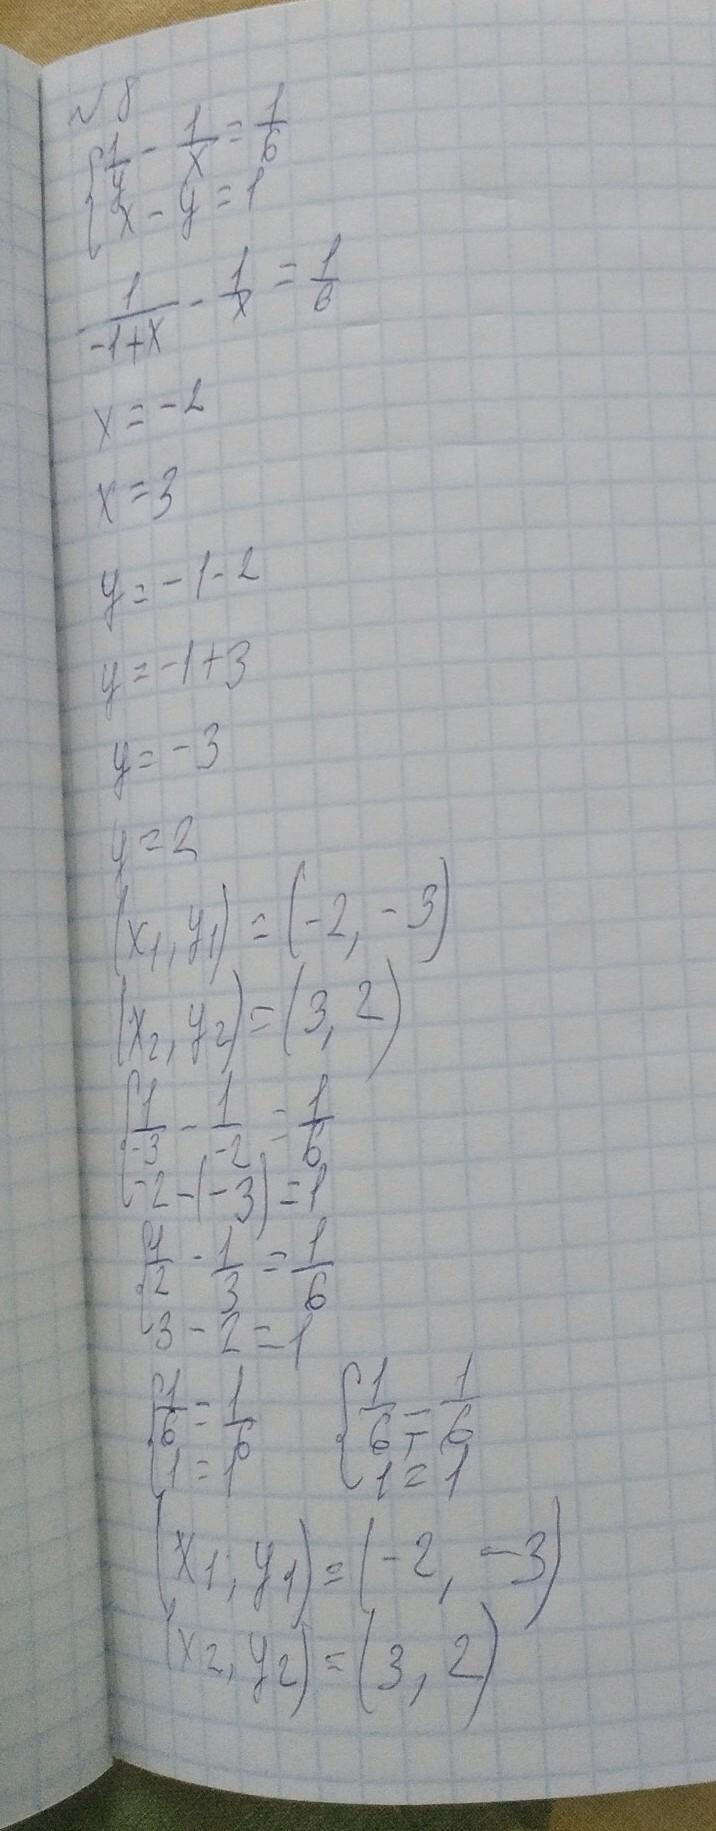 № 8
{ 1/y - 1/x = 1/6
x - y = 1
1/(-1+x) - 1/x = 1/6
x = -2
x = 3
y = -1-2
y = -1+3
y = -3
y = 2
(x1, y1) = (-2, -3)
(x2, y2) = (3, 2)
{ 1/-3 - 1/-2 = 1/6
-2-(-3) = 1
{ 1/2 - 1/3 = 1/6
3 - 2 = 1
{ 1/6 = 1/6 { 1/6 = 1/6
1 = 1 1 = 1
(x1, y1) = (-2, -3)
(x2, y2) = (3, 2)